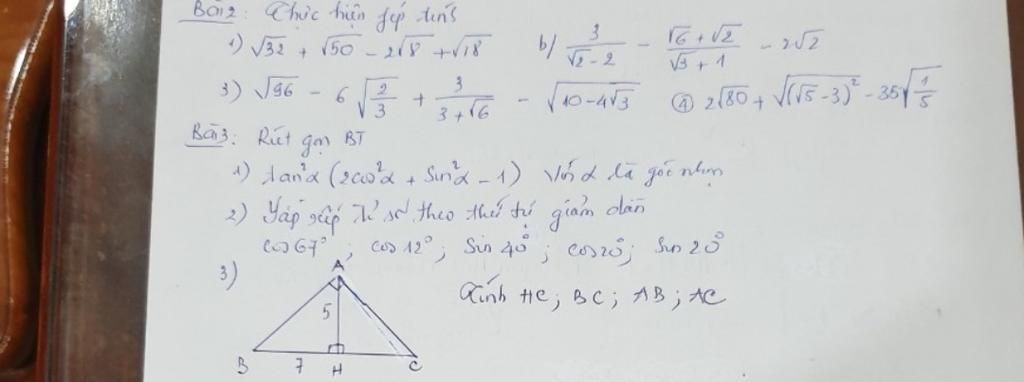 Bài 2: Thực hiện phép tính
1) √32 + √50 - 2√8 + √18 b/ 3/(√2 - 2) - (√6 + √2)/(√3 + 1) - 2√2
3) √96 - 6√(2/3) + 3/(3 + √6) - √(10 - 4√3) ④ 2√80 + √((√5 - 3)²) - 35√(1/5)
Bài 3: Rút gọn BT
1) tan²α (2cos²α + sin²α - 1) với α là góc nhọn
2) Sắp xếp tỉ số theo thứ tự giảm dần
cos 67°; cos 12°; Sin 40°; cos 20°; Sin 20°
3) A
Tính HC; BC; AB; AC
5
B 7 H C